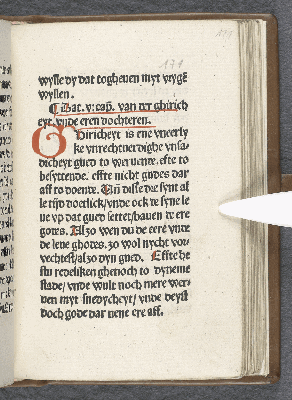 171
wylle dy dat togheuen myt vryge
wyllen.
¶ Dat. v. cap. van der ghirich
eyt. vnde eren dochteren.
Ghiricheyt is ene vneerly
ke vnrechuerdighe vnsa-
dicheyt gued to weruene. efte to
besyttende. effte nicht gudes dar
aff to doente. Un disse dre synt al
le tijd doetlick/ vnde ock we syne le
ue vp dat gued settet/ bauen de ere
godes. Alzo wen du de eere vnde
de leue ghodes. zo wol nycht vor-
vechtest/ alzo dyn gued. Effte he
stu redeliken ghenoch to dyneme
stade/ vnde wult noch mere wer-
den myt snedycheyt/ vnde deyst
doch gode dar nene ere aff.